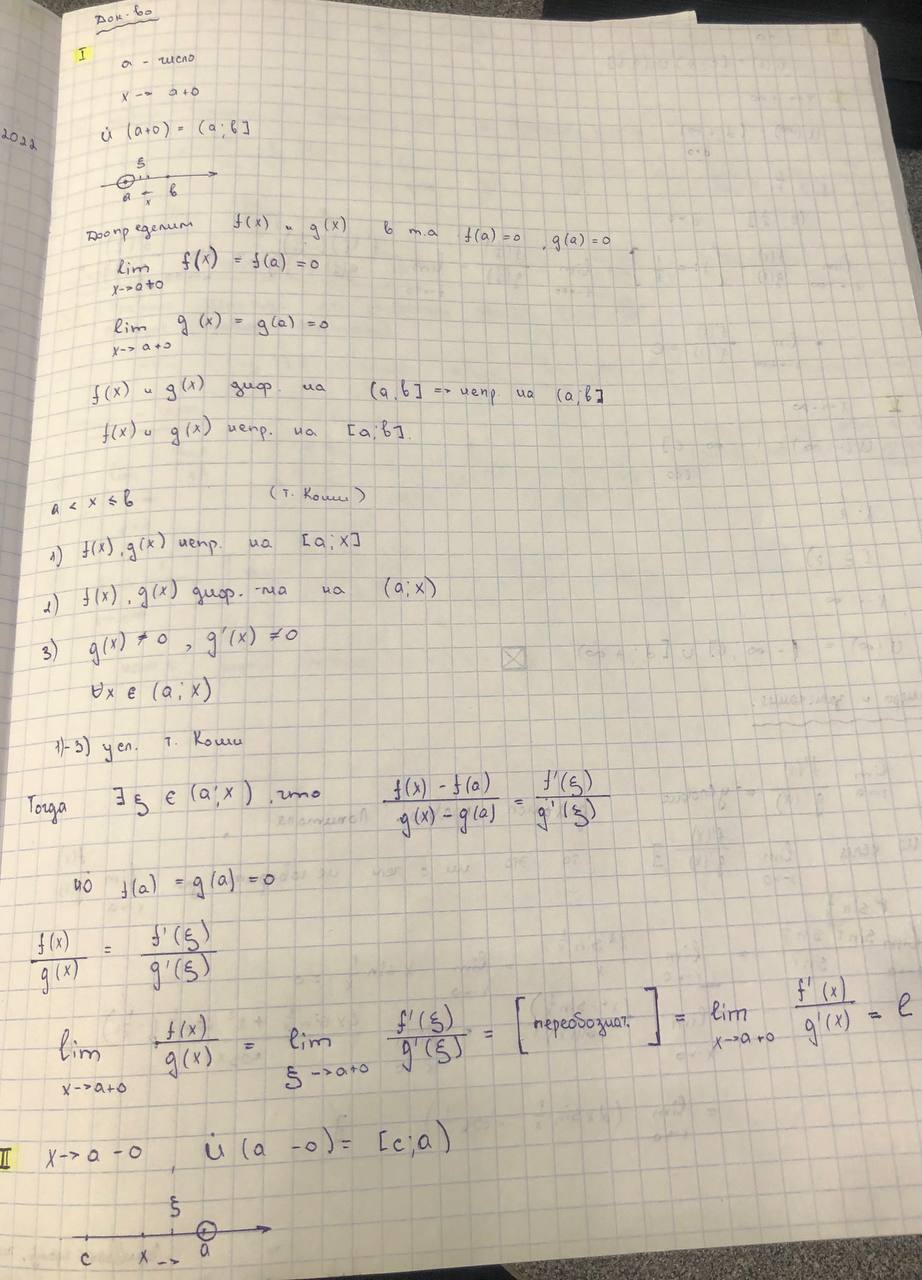 Док-во
I
a - число
x → a+0
2022
U̇ (a+0) = (a;b]
ξ
a x b
Доопределим f(x) и g(x) в т.a f(a)=0, g(a)=0
lim f(x) = f(a) = 0
x→a+0
lim g(x) = g(a) = 0
x→a+0
f(x) и g(x) диф. на (a,b] => непр. на (a;b]
f(x) и g(x) непр. на [a;b].
a < x ≤ b (т. Коши)
1) f(x), g(x) непр. на [a;x]
2) f(x), g(x) диф.-ма на (a;x)
3) g(x) ≠ 0, g'(x) ≠ 0
∀x ∈ (a;x)
1)-3) усл. т. Коши
Тогда ∃ ξ ∈ (a;x), что (f(x) - f(a))/(g(x) - g(a)) = f'(ξ)/g'(ξ)
но f(a) = g(a) = 0
f(x)/g(x) = f'(ξ)/g'(ξ)
lim f(x)/g(x) = lim f'(ξ)/g'(ξ) = [переобознат.] = lim f'(x)/g'(x) = l
x→a+0 ξ→a+0 x→a+0
II x→a-0, U̇ (a-0) = [c;a)
ξ
c x → a